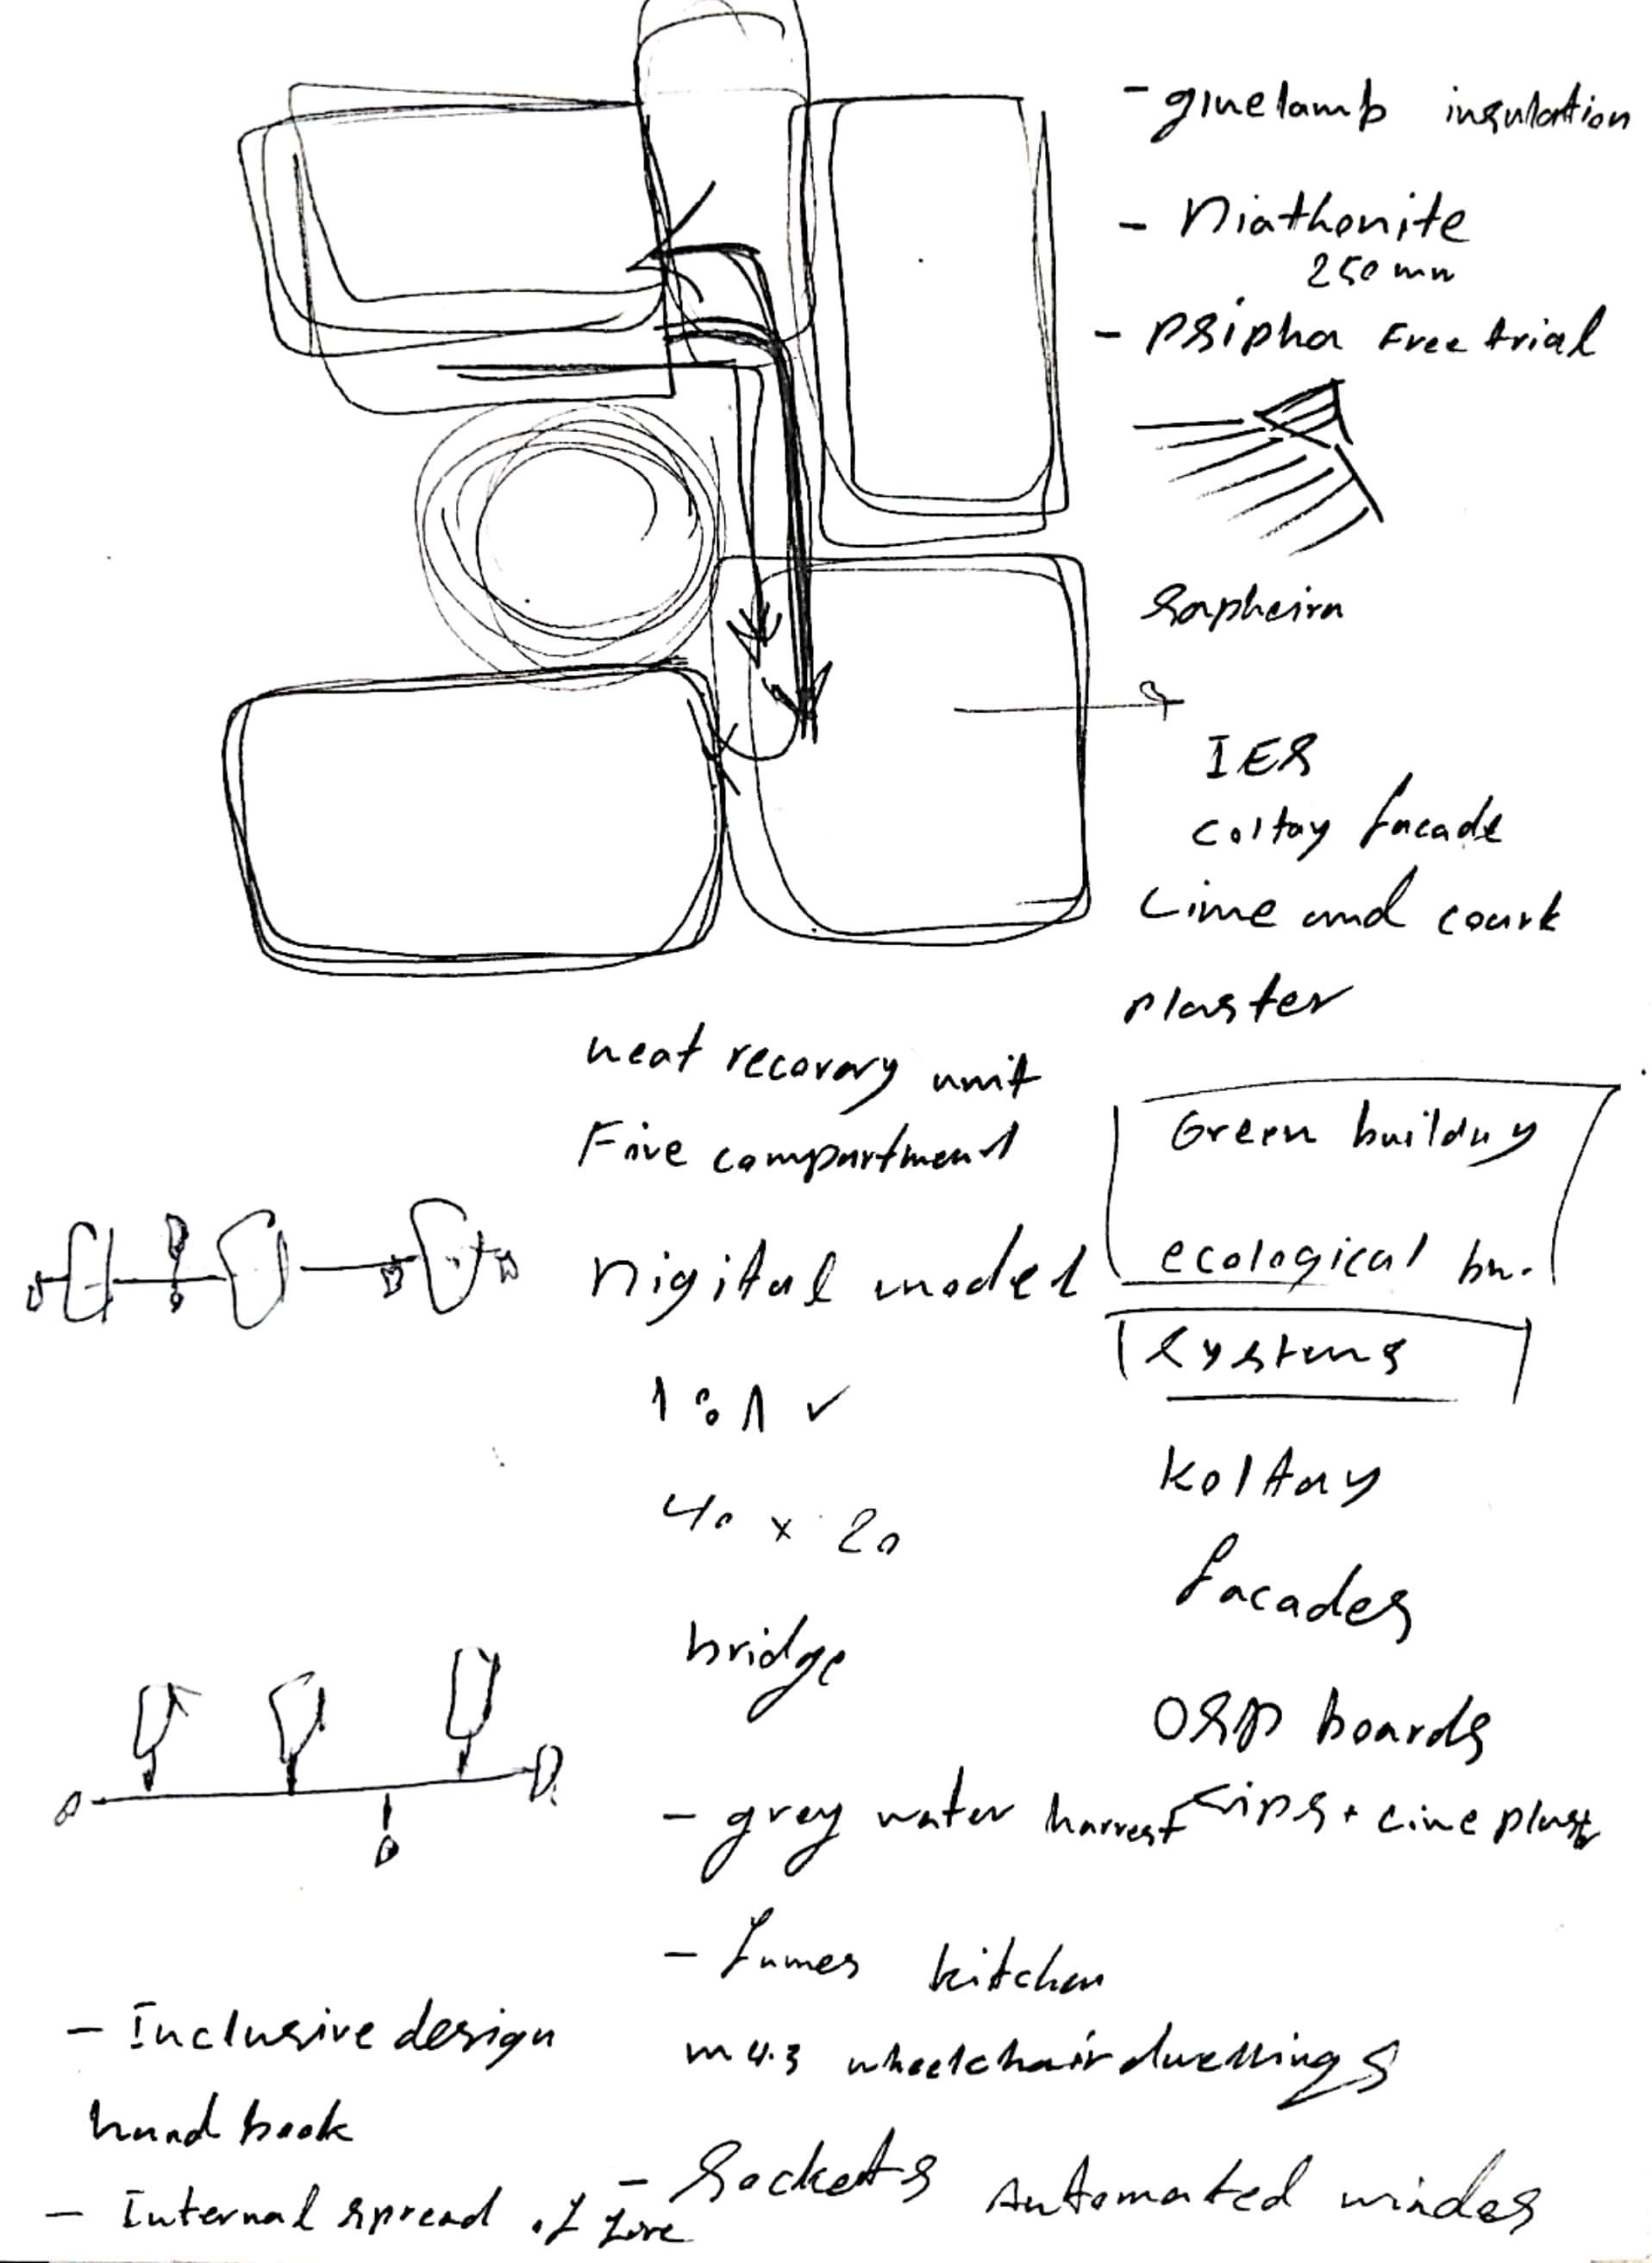 - gluelamb insulation
- Diathonite
250 mm
- PSipha Free trial
Sapheira
IES
Coltay facade
Lime and courk
plaster
heat recovery unit
Five compartment
Green building
ecological bu.
Digital model
Systems
1:1 ✓
40 x 20
Koltay
facades
bridge
OSB boards
- grey water harvest
Sips + Lime plast
- fumes kitchen
- Inclusive design
hand book
m4.3 wheelchair dwellings
- Internal spread of fire
- Sockets Automated windos